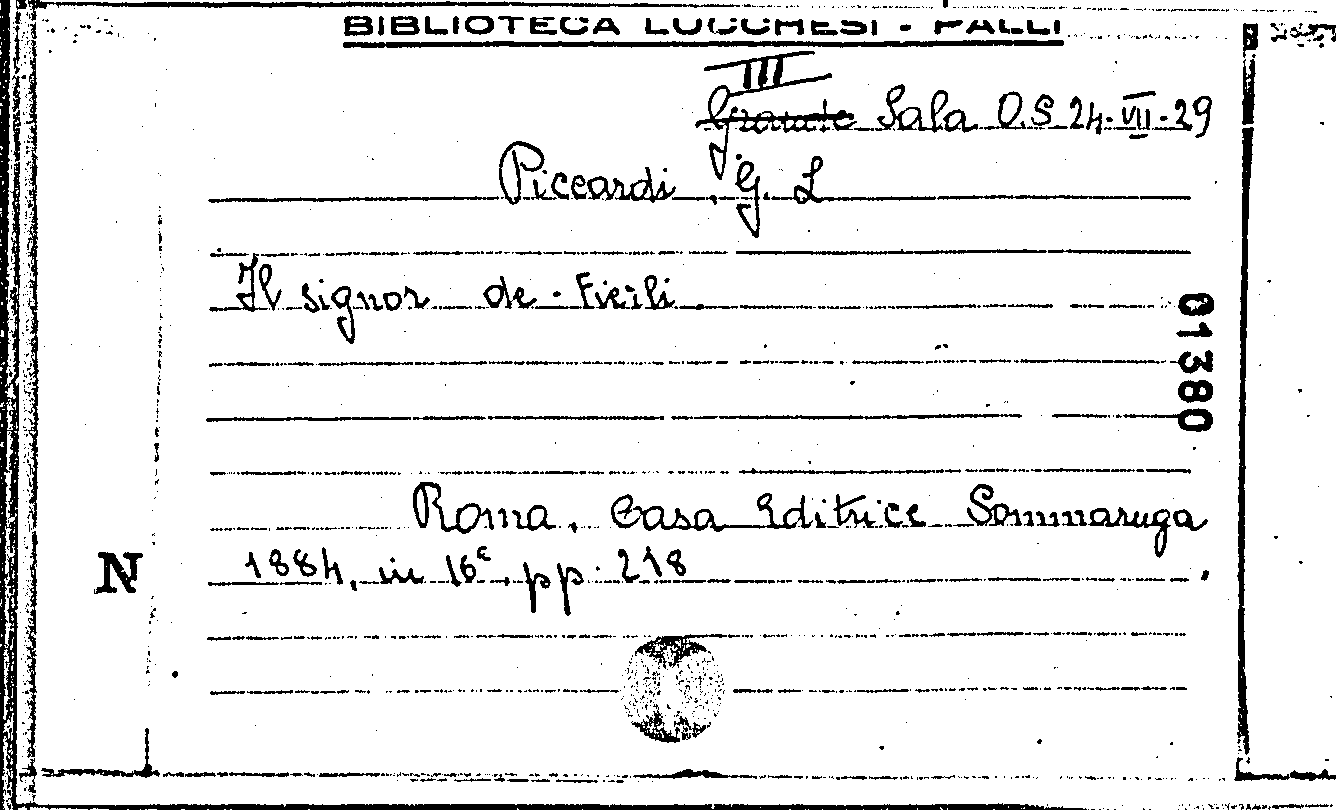 BIBLIOTECA LUCCHESI - PALLI
III
Grande Sala O.S 24-VII-29
Piccardi, G. L
Il signor de-Fieili.
01380
Roma, Casa Editrice Sommaruga
1884, in 16°, pp. 218
N